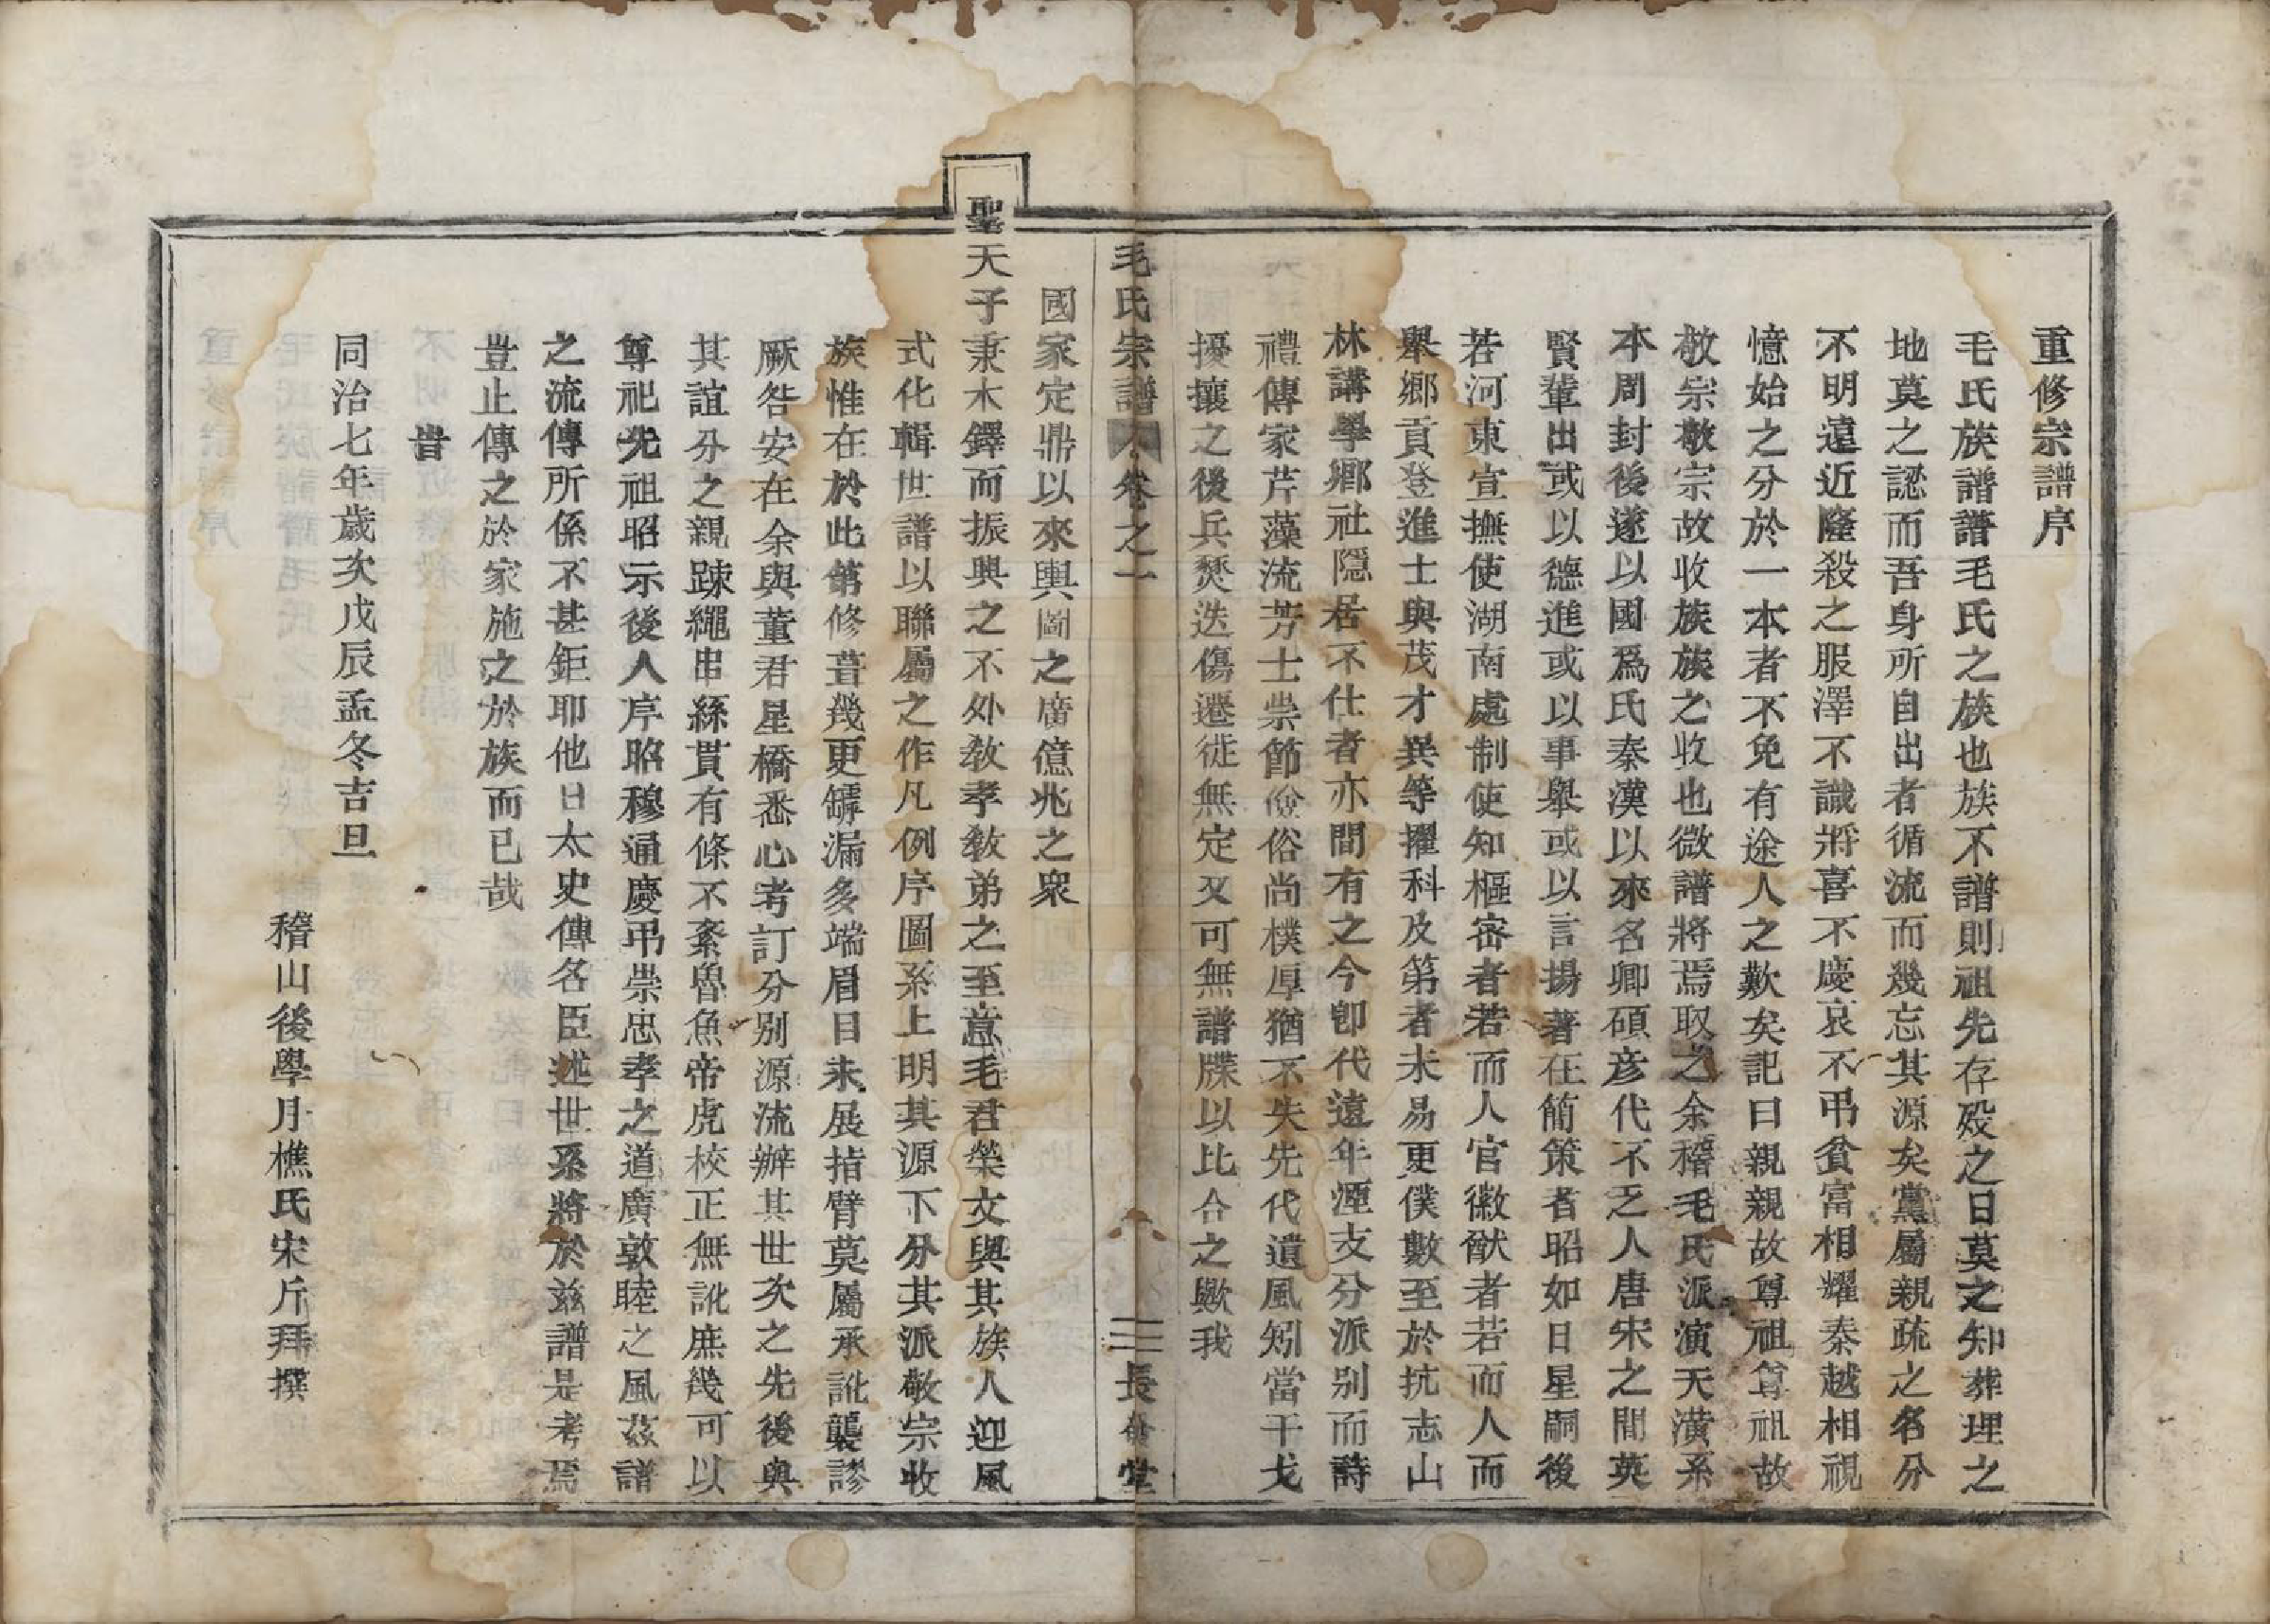 重修宗譜序
毛氏族譜譜毛氏之族也族不譜則祖先存歿之日莫之知葬埋之
地莫之認而吾身所自出者循流而幾忘其源矣黨屬親疏之名分
不明遠近隆殺之服澤不識將喜不慶哀不弔貧富相耀秦越相視
憶始之分於一本者不免有途人之歎矣記曰親親故尊祖尊祖故
敬宗敬宗故收族族之收也微譜將焉取之余稽毛氏派演天潢系
本周封後遂以國爲氏秦漢以來名卿碩彥代不乏人唐宋之間英
賢輩出或以德進或以事舉或以言揚著在簡策者昭如日星嗣後
若河東宣撫使湖南處制使知樞密者若而人官徽猷者若而人而
舉鄉貢登進士與茂才異等擢科及第者未易更僕數至於抗志山
林講學鄉社隱居不仕者亦間有之今卽代遠年湮支分派別而詩
禮傳家芹藻流芳士崇節儉俗尚樸厚猶不失先代遺風矧當干戈
擾攘之後兵燹迭傷遷徙無定又可無譜牒以比合之歟我
毛氏宗譜 卷之一 三 長發堂
國家定鼎以來輿圖之廣億兆之衆
聖天子秉木鐸而振興之不外敎孝敎弟之至意毛君榮文與其族人迎風
式化輯世譜以聯屬之作凡例序圖系上明其源下分其派敬宗收
族惟在於此第修葺幾更罅漏多端眉目未展指臂莫屬承訛襲謬
厥咎安在余與董君星橋悉心考訂分別源流辦其世次之先後與
其誼分之親踈繩串絲貫有條不紊魯魚帝虎校正無訛庶幾可以
尊祀先祖昭示後人序昭穆通慶弔崇忠孝之道廣敦睦之風茲譜
之流傳所係不甚鉅耶他日太史傳名臣述世系將於茲譜是考焉
豈止傳之於家施之於族而已哉
旹
同治七年歲次戊辰孟冬吉旦
稽山後學月樵氏宋斤拜撰